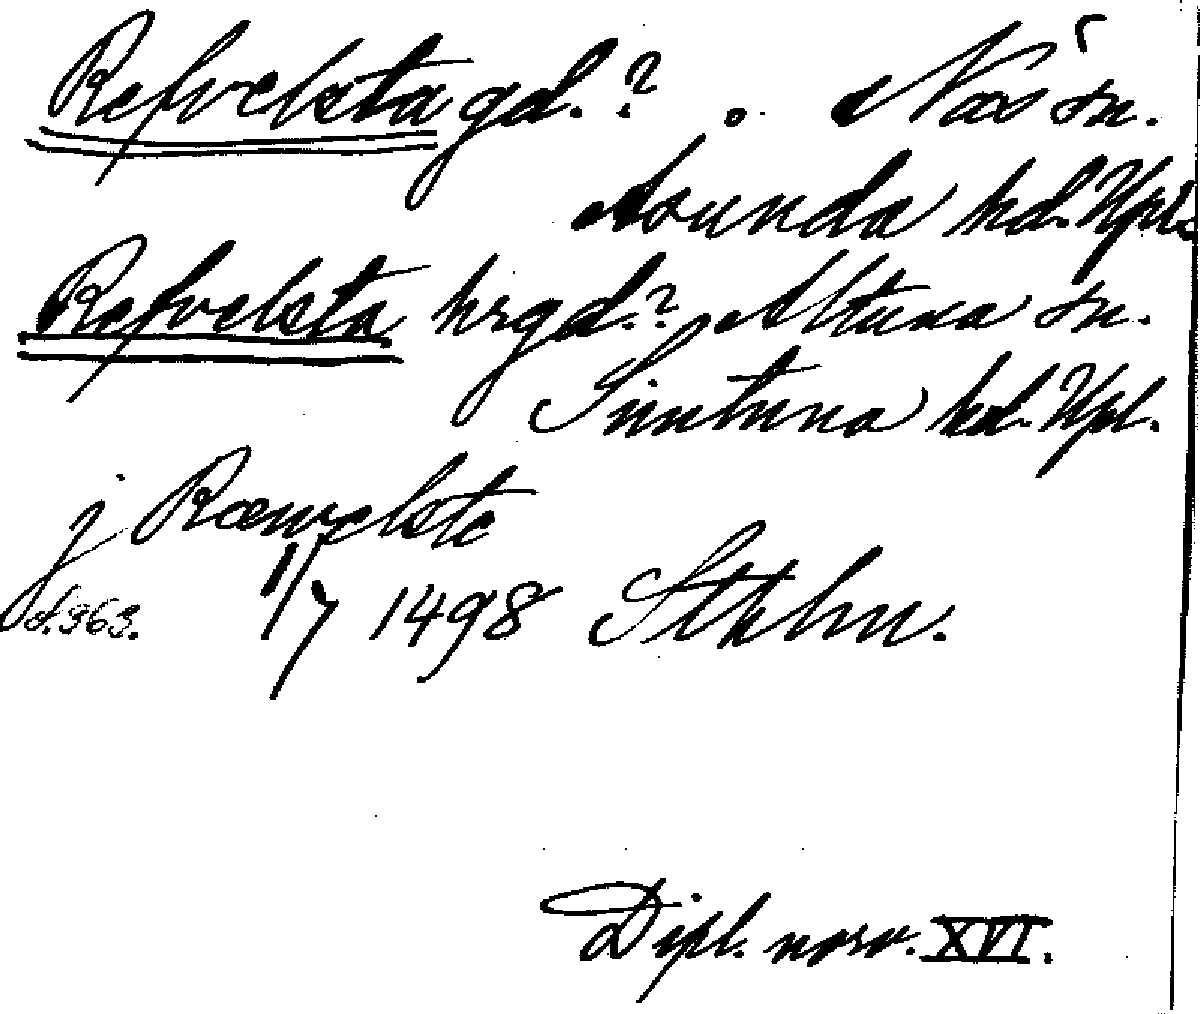 Refvelsta gd.? Näs sn.
Åsunda hd. Upl.
Refvelsta hrgd.? Altuna sn.
Simtuna hd. Upl.
j Ræwelste
s. 363. 1/7 1498 Sthlm.
Dipl. norv. XVI.